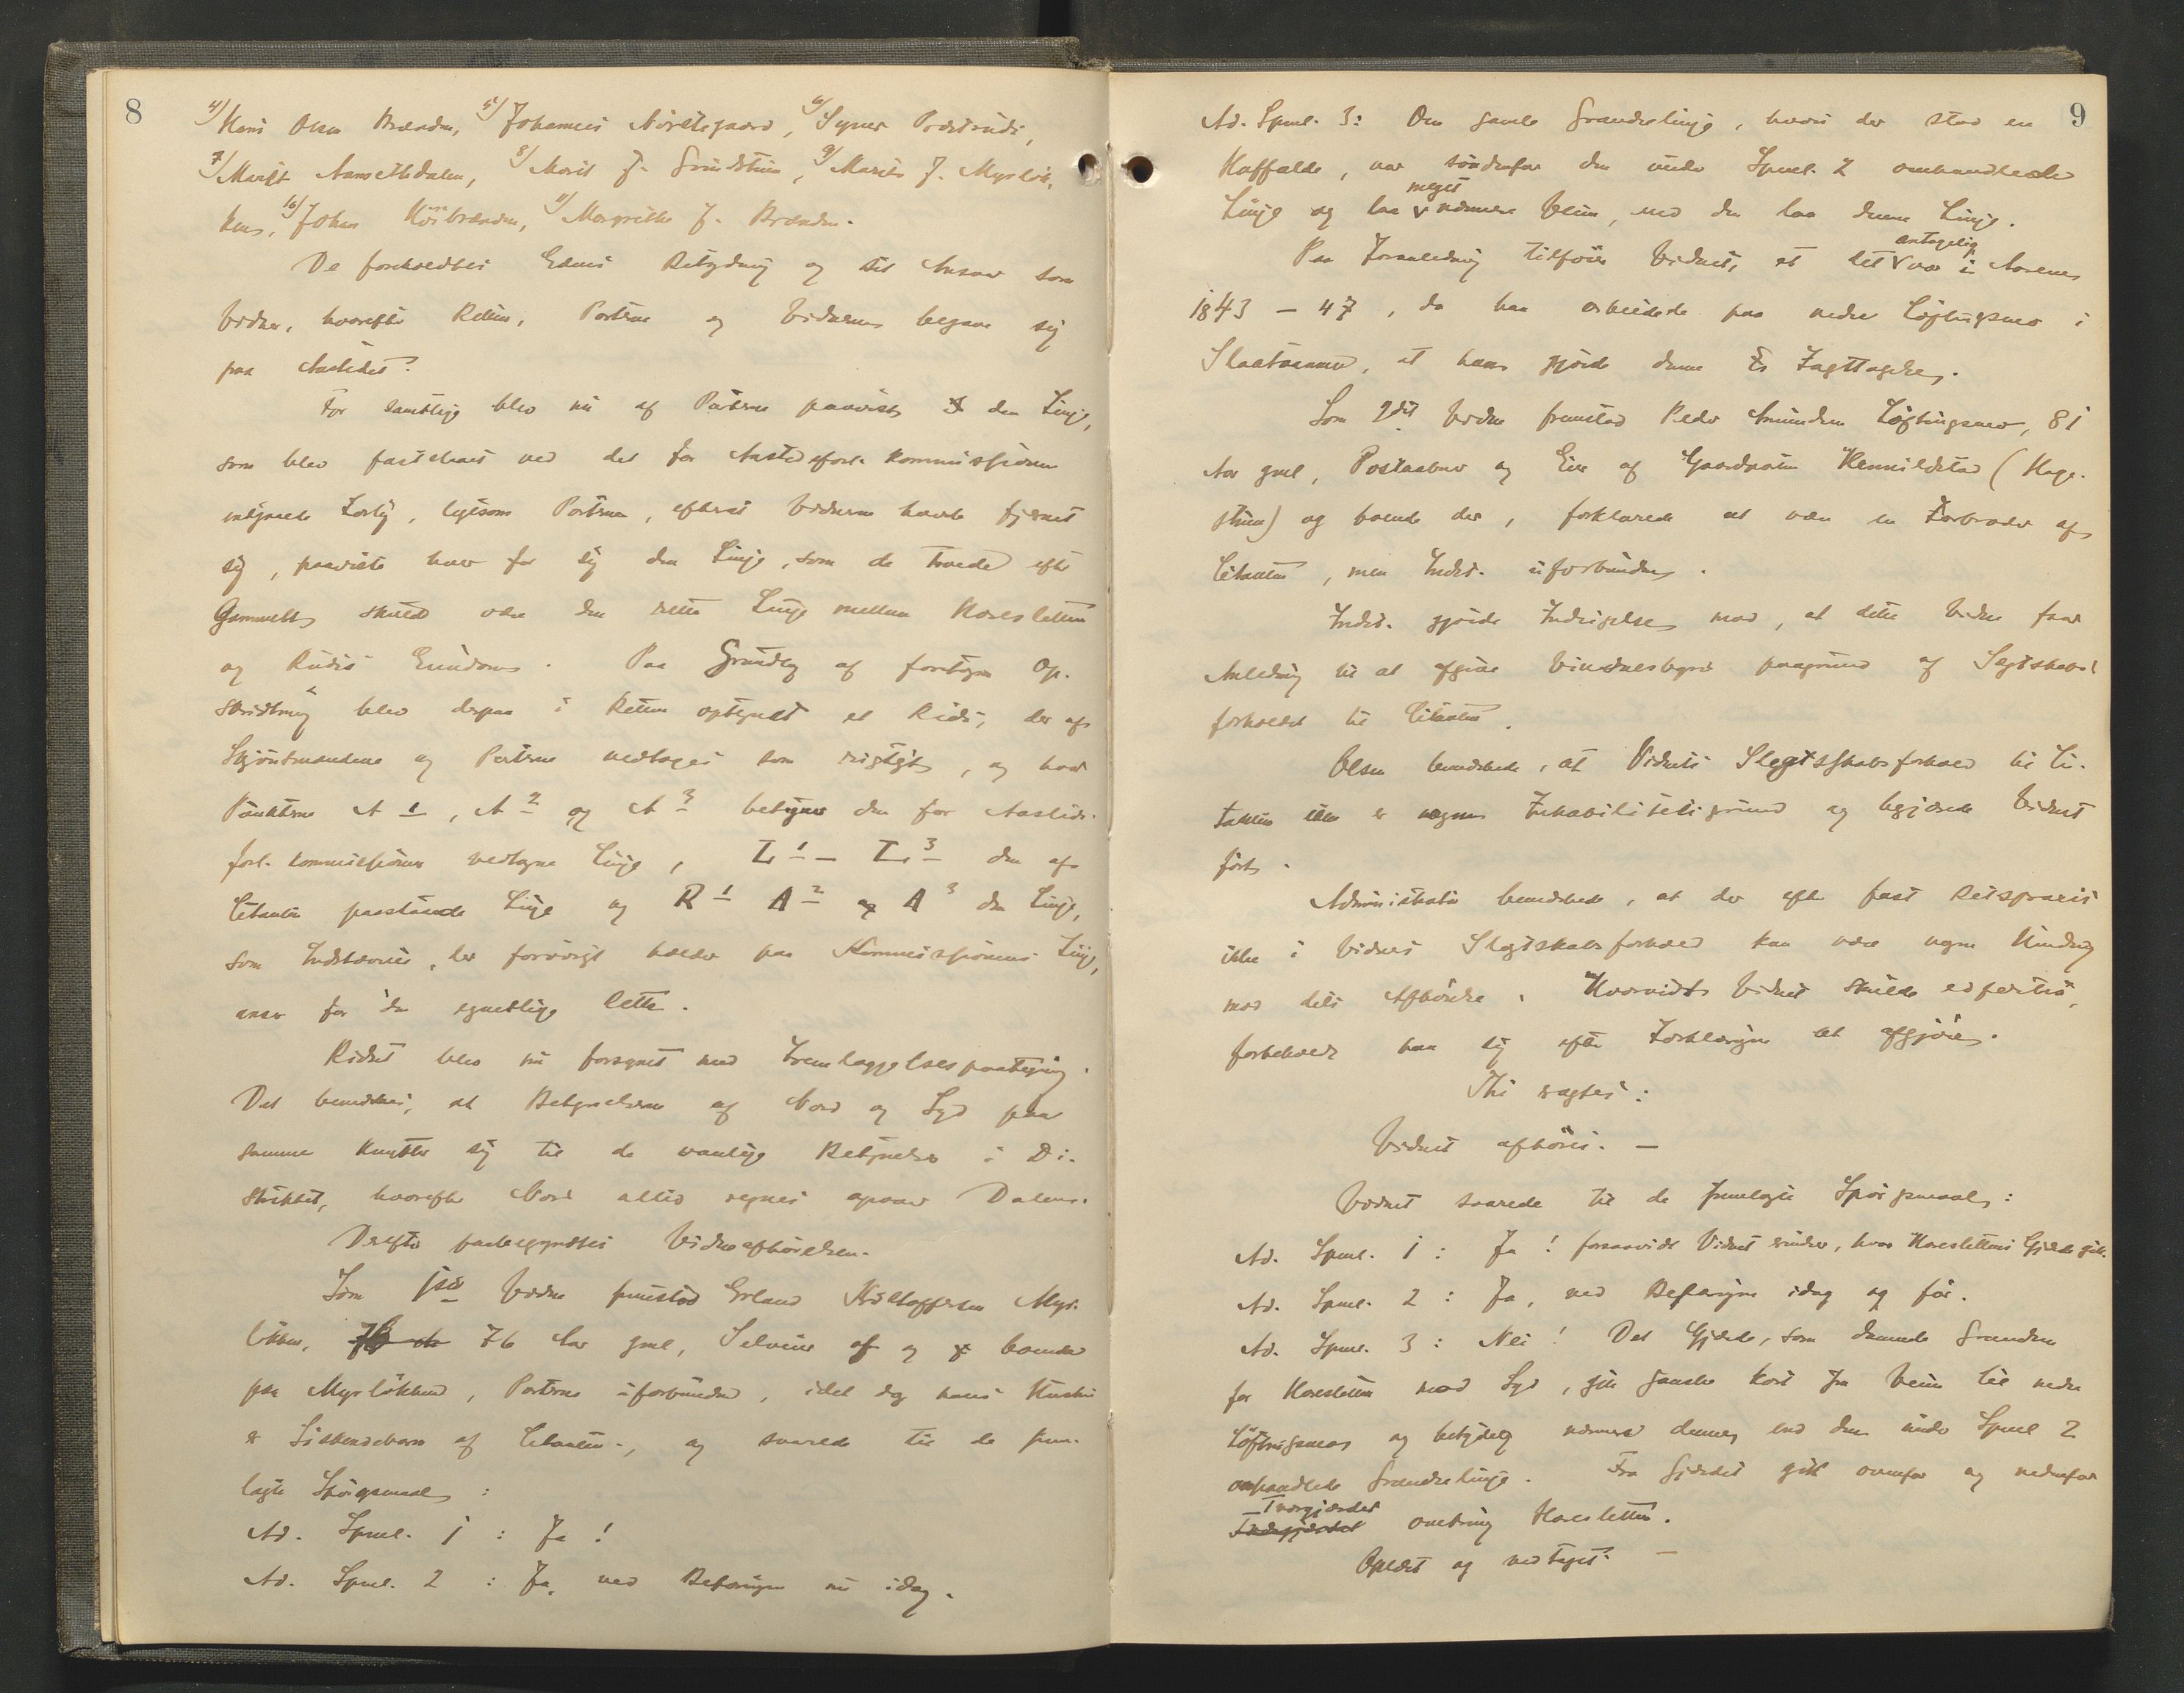 8
4) Hans Olsen Brænden, 5) Johannes Nörstegaard, 6) Syver Prestrud,
7) Marit Aamotsdalen, 8) Marit J. Grindstuen, 9) Marit J. Myrlök-
ken, 10) Johan Nörbrænden, 11) Margrethe J. Brænden.
De foreholdtes Edens Betydning og sit Ansvar som
Vidner, hvorefter Retten, Parterne og Vidnerne begave sig
paa Aastedet.
For samtlige blev nu af Parterne paavist den Linje,
som blev fastslaaet ved det for Aastedsforl. kommissionen
indgaaede Forlig, ligesom Parterne, efterat Vidnerne havde fjernet
sig, paaviste hver for sig den Linje, som de troede efter
Gammelt skulde være den rette Linje mellem Haresletten
og Ruds Eiendom. Paa Grundlag af foretagen Op-
skridtning blev derpaa i Retten optegnet et Rids, der af
Skjönsmændene og Parterne vedtoges som rigtigt, og hvor
Punkterne A 1, A 2 og A 3 betegner den for Aasteds-
forl. kommissionen vedtagne Linje, L 1 - L 3 den af
Citanten paastaaede Linje og R 1 A 2 og A 3 den Linje,
som Indstævnte, der forövrigt holder paa Kommissionens Linje,
anser for den egentlige rette.
Ridset blev nu forsynet med Fremlæggelsespaategning.
Det bemærkes, at Betegnelserne af Nord og Syd paa
samme knytter sig til de vanlige Betegnelser i Di-
striktet, hvorefter Nord altid regnes opover Dalen.
Derefter paabegyndtes Vidneafhörelsen.
Som 1ste Vidne fremstod Erland Kristoffersen Myr-
lökken, 76 Aar gml, Selveier af og boende
paa Myrlökken, Parterne uforbunden, idet dog hans Hustru
er Sidskendebarn af Citanten, og svarede til de frem-
lagte Spörgsmaal:
Ad. Spml. 1 : Ja!
Ad. Spml. 2 : Ja, ved Befaringen nu idag.
9
Ad. Spml. 3: Den gamle Grændselinje, hvori der stod en
, var söndenfor den under Spml. 2 omhandlede
Linje og laa meget nærmere Veien, end den laa denne Linje.
Paa Foranledning tilföier Vidnet, at det antagelig var i Aarene
1843 - 47, da han arbeidede paa nedre Löftingsmo i
Slaataannen, at han gjorde denne Iagttagelse.
Som 2det Vidne fremstod Peder Amundsen Löftingsmo, 81
Aar gml, Postaabner og Eier af Gaardparten Hemmildstad (Hage-
stuen) og boende der, forklarede at være en Farbroder af
Citanten, men Indst. uforbunden.
Indst. gjorde Indsigelse mod, at dette Vidne faar
Anledning til at afgive Vidnesbyrd paagrund af Slegtskabs-
forholdet til Citanten.
Olsen bemærkede, at Vidnets Slegtskabsforhold til Ci-
tanten ikke er nogen Inhabilitetsgrund og begjærede Vidnet
fört.
Administrator bemærkede, at der efter fast Retspraxis
ikke i Vidnets Slegtskabsforhold kan være nogen Hindring
mod dets Afhörelse. Hvorvidt Vidnet skulde edfæstes,
forbeholdt han sig efter Forklaringen at afgjöre.
Thi sagtes:
Vidnet afhöres. —
Vidnet svarede til de fremlagte Spörgsmaal:
Ad. Spml. 1 : Ja! forsaavidt Vidnet erindrer, hvor Hareslettens Gjærde gik.
Ad. Spml. 2 : Ja, ved Befaringen idag og för.
Ad. Spml. 3 : Nei! Det Gjærde, som dannede Grændsen
for Haresletten mod Syd, gik ganske kort fra Veien til nedre
Löftingsmo og betydelig nærmere denne, end den under Spml 2
omhandlede Grændselinje. Fra Gjærdet gik ovenfor og nedenfor
Tvergjærdet omkring Haresletten.
Oplæst og vedtaget. —